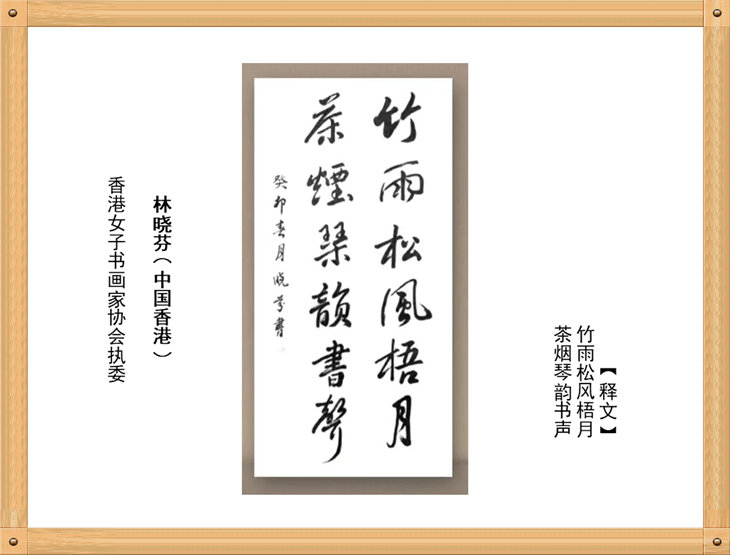 【释文】
竹雨松风梧月
茶烟琴韵书声
竹雨松風梧月
茶煙琴韻書聲
癸卯春月晓芬書
林晓芬（中国香港）
香港女子书画家协会执委